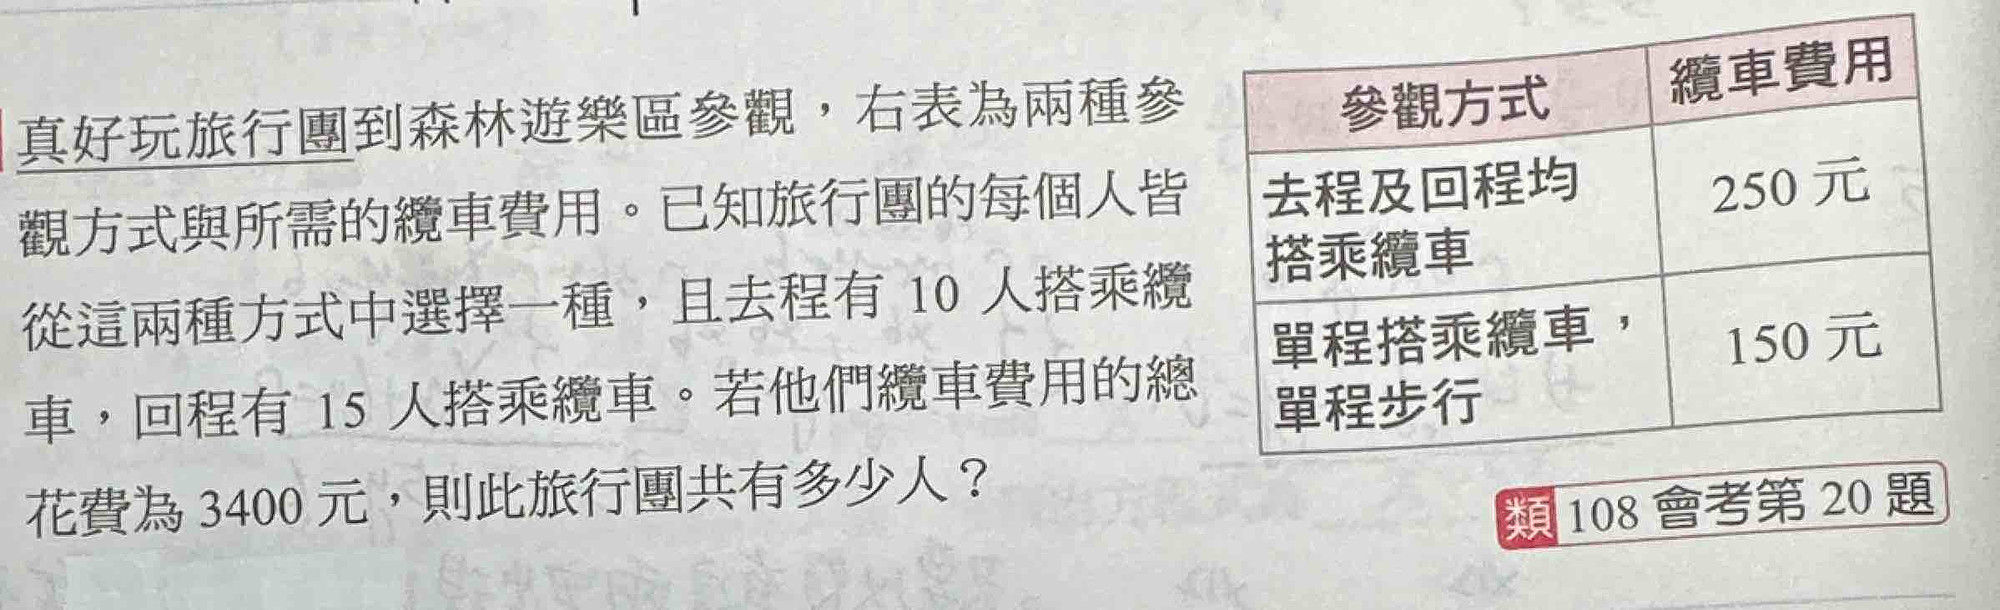 真好玩旅行團到森林遊樂區參觀，右表為兩種參
觀方式與所需的纜車費用。已知旅行團的每個人皆
從這兩種方式中選擇一種，且去程有 10 人搭乘纜
車，回程有 15 人搭乘纜車。若他們纜車費用的總
花費為 3400 元，則此旅行團共有多少人？
參觀方式 纜車費用
去程及回程均
搭乘纜車 250 元
單程搭乘纜車，
單程步行 150 元
類 108 會考第 20 題